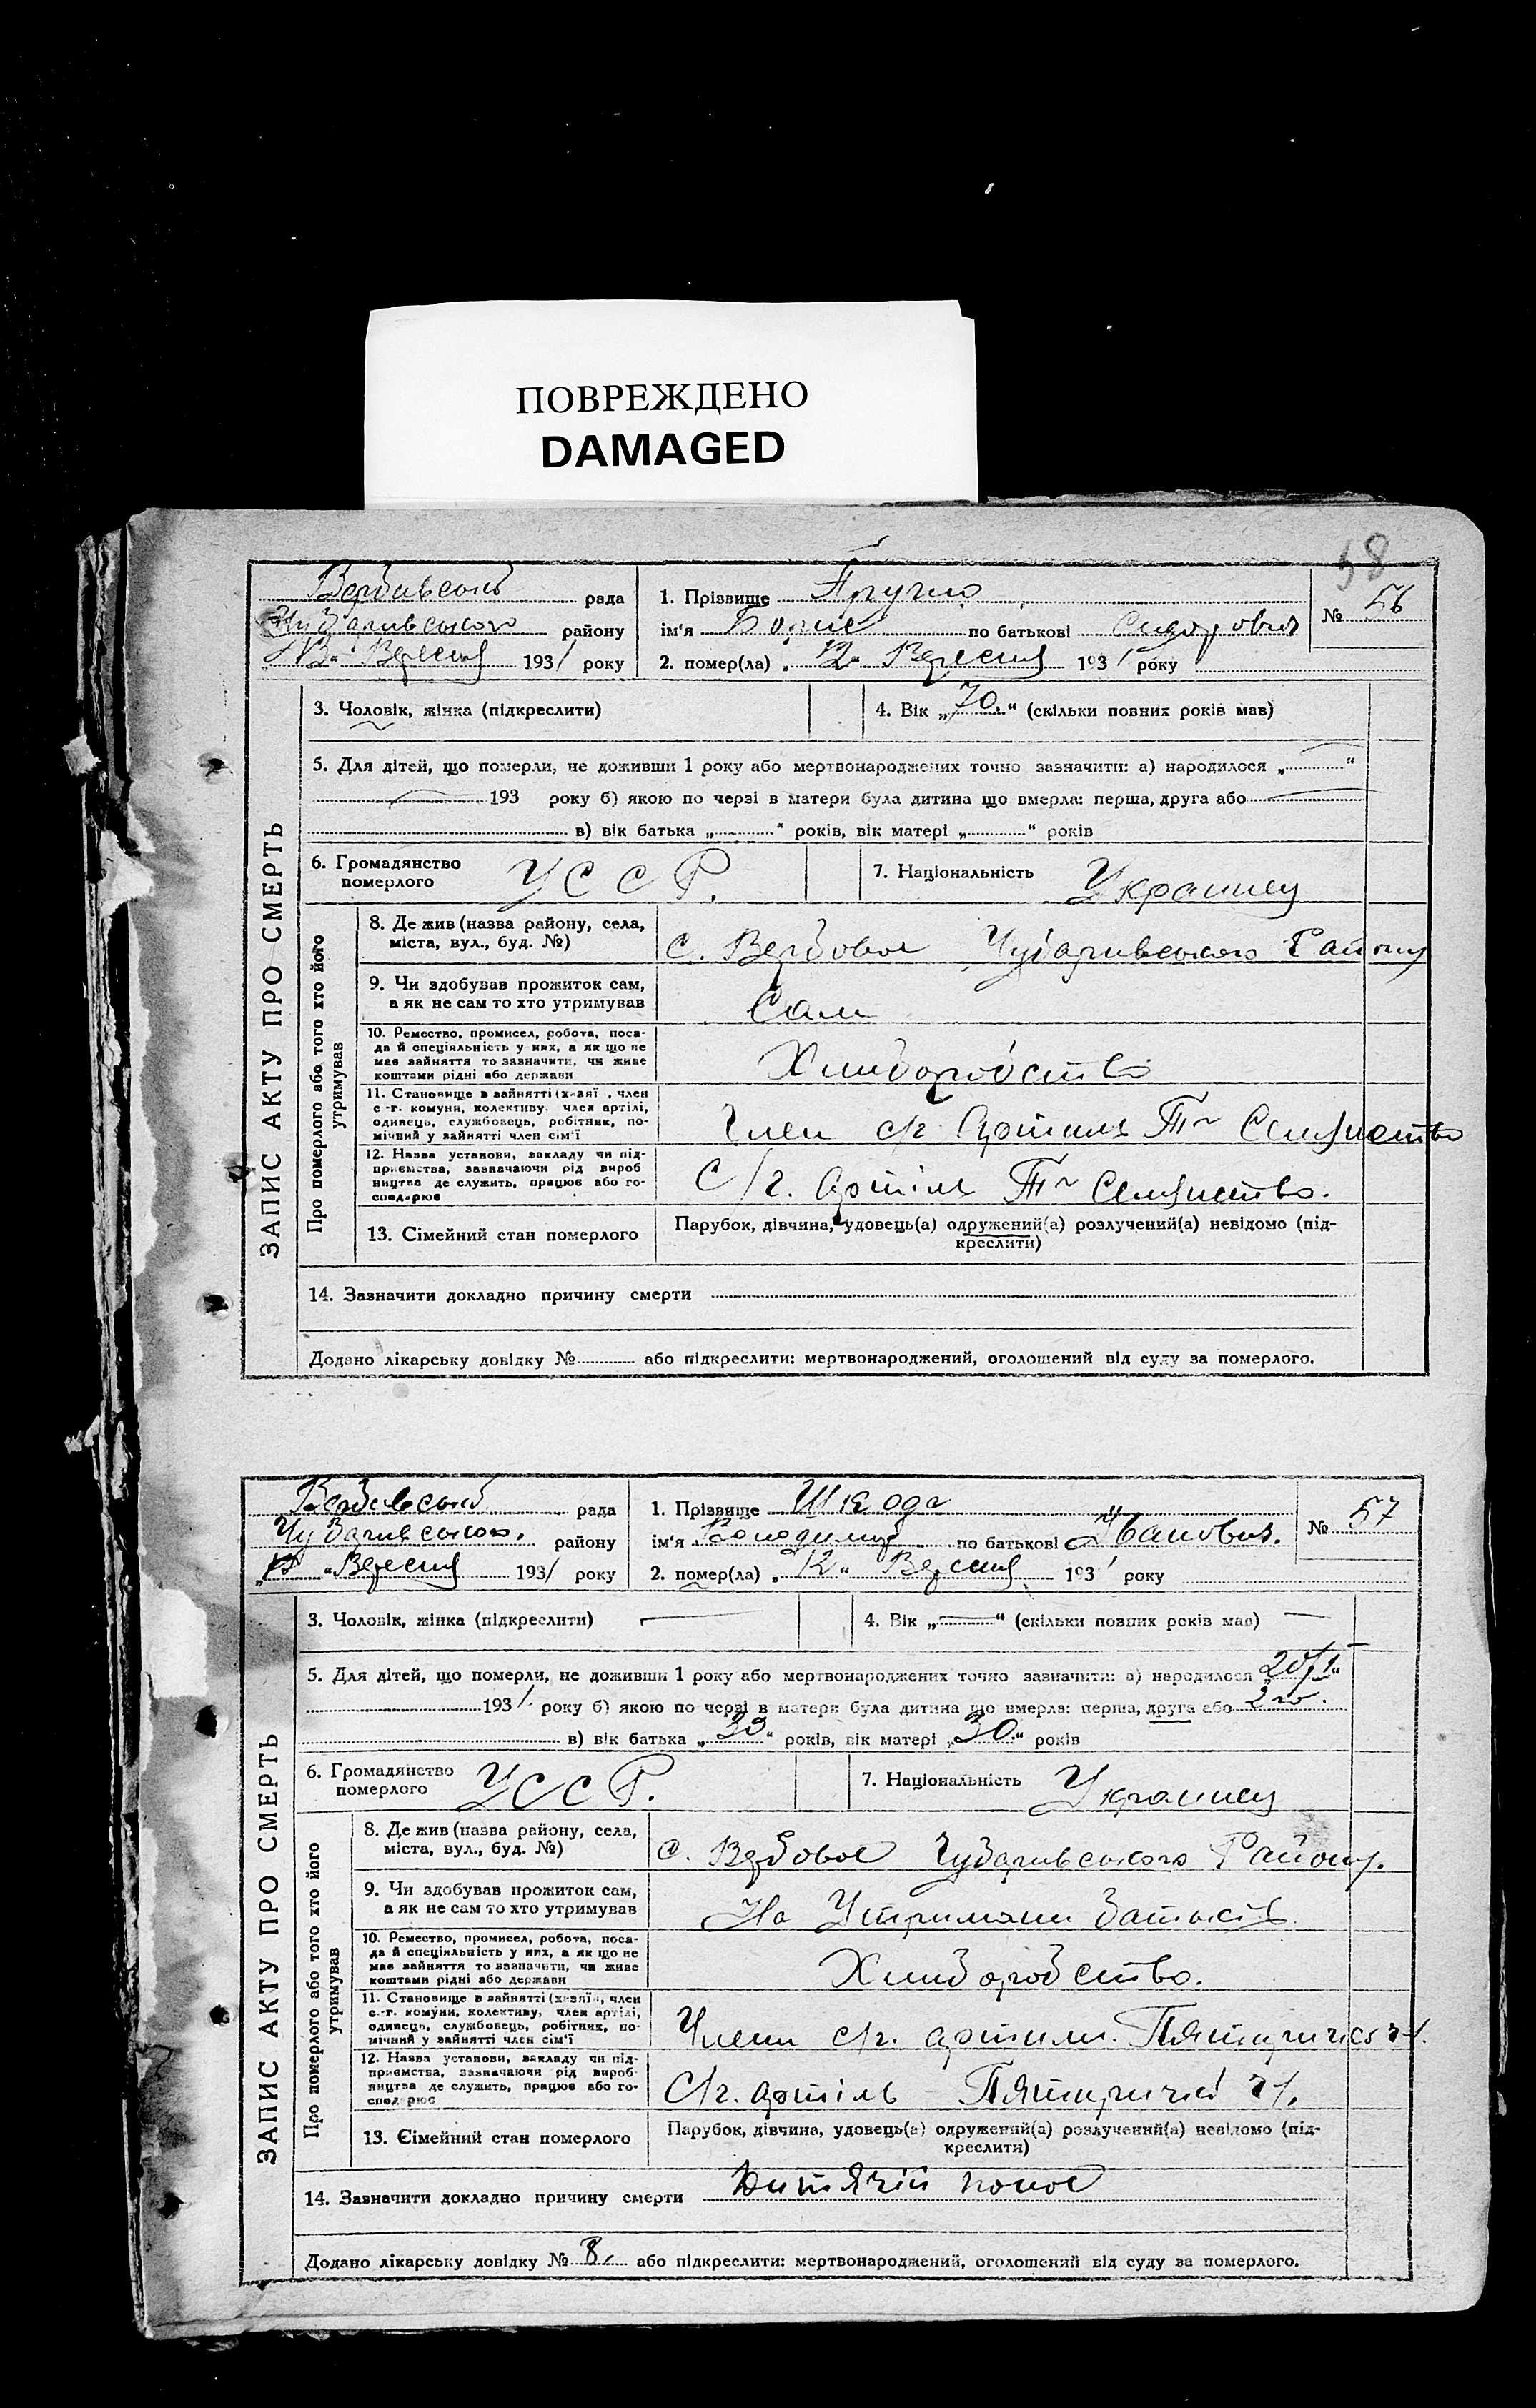 ПОВРЕЖДЕНО
DAMAGED
58
Вербівської рада
Чубарівського району
"13" Вересня 1931 року
1. Прізвище
ім'я по батькові Сидорович
2. помер(ла) „12" Вересня 1931 року
№ 56
ЗАПИС АКТУ ПРО СМЕРТЬ
3. Чоловік, жінка (підкреслити)
4. Вік „70." (скільки повних років мав)
5. Для дітей, що померли, не доживши 1 року або мертвонароджених точно зазначити: а) народилося „ "
193 року б) якою по черзі в матери була дитина що вмерла: перша, друга або
в) вік батька „ " років, вік матері „ " років
6. Громадянство
померлого
УССР.
7. Національність Украинец
Про померлого або того хто його
утримував
8. Де жив (назва району, села,
міста, вул., буд. №)
с. Вербовое Чубарівського Району
9. Чи здобував прожиток сам,
а як не сам то хто утримував
Сам
10. Ремество, промисел, робота, поса-
да й спеціяльність у них, а як що не
має зайняття то зазначити, чи живе
коштами рідні або держави
Хлиборобство
11. Становище в зайнятті (хазяї , член
с.-г. комуни, колективу, член артілі,
одинець, службовець, робітник, по-
мічний у зайнятті член сім'ї
Член с/г Артили
12. Назва установи, закладу чи під-
приємства, зазначаючи рід вироб
ництва де служить, працює або го-
сподарює
С/г. Артіль
13. Сімейний стан померлого
Парубок, дівчина, удовець(а) одружений(а) розлучений(а) невідомо (під-
креслити)
14. Зазначити докладно причину смерти
Додано лікарську довідку № або підкреслити: мертвонароджений, оголошений від суду за померлого.
Вербівської рада
Чубарівського. району
„13" Вересня 1931 року
1. Прізвище Шкода
ім'я Володимир по батькові Іванович.
2. помер(ла) „12" Вересня 1931 року
№ 57
ЗАПИС АКТУ ПРО СМЕРТЬ
3. Чоловік, жінка (підкреслити)
4. Вік „ " (скільки повних років мав)
5. Для дітей, що померли, не доживши 1 року або мертвонароджених точно зазначити: а) народилося „20/І"
1931 року б) якою по черзі в матери була дитина що вмерла: перша, друга або 2го.
в) вік батька „30" років, вік матері „30." років
6. Громадянство
померлого
УССР.
7. Національність Украинец
Про померлого або того хто його
утримував
8. Де жив (назва району, села,
міста, вул., буд. №)
с. Вербовое Чубарівського Району.
9. Чи здобував прожиток сам,
а як не сам то хто утримував
На Утримани батьків
10. Ремество, промисел, робота, поса-
да й спеціяльність у них, а як що не
має зайняття то зазначити, чи живе
коштами рідні або держави
Хлиборобство.
11. Становище в зайнятті (хазяїн, член
с.-г. комуни, колективу, член артілі,
одинець, службовець, робітник, по-
мічний у зайнятті член сім'ї
Члени с/г. артили.
12. Назва установи, закладу чи під-
приємства, зазначаючи рід вироб-
ництва де служить, працює або го-
сподарює
С/г. артіль
13. Сімейний стан померлого
Парубок, дівчина, удовець(а) одружений(а) розлучений(а) невідомо (під-
креслити)
14. Зазначити докладно причину смерти Дитячій понос
Додано лікарську довідку № 8. або підкреслити: мертвонароджений, оголошений від суду за померлого.